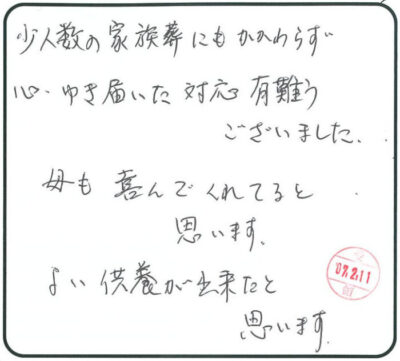 少人数の家族葬にもかかわらず
心ゆき届いた対応有難う
ございました。
母も喜んでくれてると
思います。
よい供養が出来たと
思います。
07.2.11